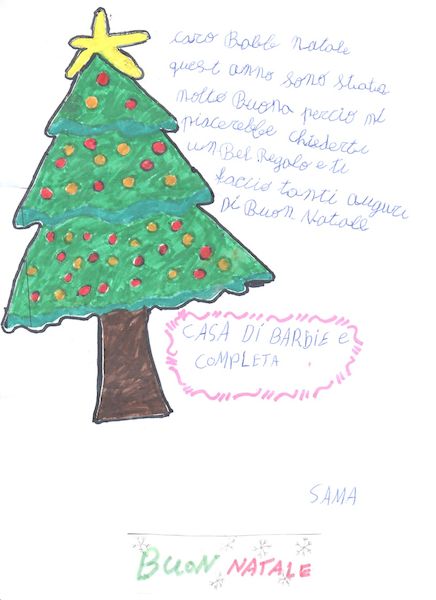 caro Babbe natale
quest anno sono stata
molto Buona perciò mi
piacerebbe chiederti
un Bel Regalo e ti
faccio tanti auguri
Di Buon Natale
CASA DI BARBIE e
COMPLETA
SAMA
BUON NATALE